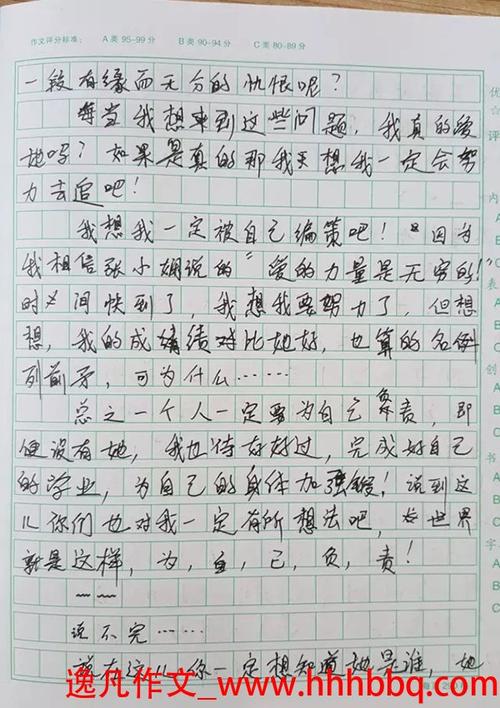 作文评分标准: A类 95-99分 B类 90-94分 C类 80-89分
一段有缘而无分的仇恨呢?
每当我想来到这些问题,我真的爱
她吗?如果是真的那我天想我一定会努
力去追吧!
我想我一定被自己编策吧!"因为
我相信张小娴说的"爱的力量是无穷的!
时间快到了,我想我要努力了,但想
想,我的成绩对比她好,也算的名例
列前矛,可为什么……
总之一个人一定要为自己负责,即
便没有她,我也待好好过,完成好自己
的学业,为自己的身体加强锻!说到这
儿你们也对我一定有所想法吧,世界
就是这样,为,自,己,负,责!
~~
说不完……
就在这儿你一定想知道她是谁,她
优
☆
评
内
A
B
C
表
A
B
C
创
A
B
C
书
A
B
C
字
A
B
C
逸凡作文_www.hhhbbq.com